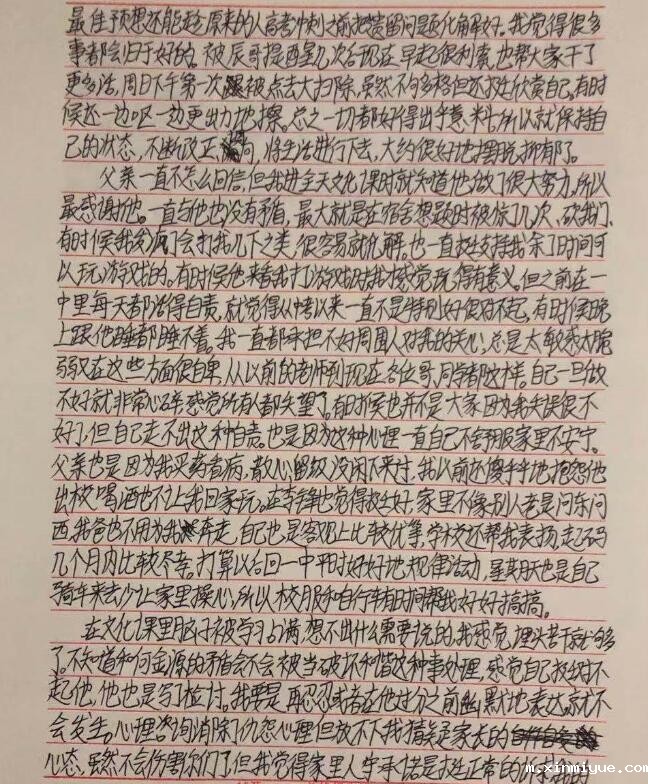 最佳预想还能趁原来的人高考冲刺之前把遗留问题化解好。我觉得很多
事都会归于好的。被辰哥提醒几次后现在早起很利索,也帮大家干了
更多活,周日下午第一次被点去大扫除,虽然不够多格但还挺欣赏自己。有时
候还一边呕一边更出力地擦。总之一切都好得出乎意料,所以就保持自
己的状态,不断改正,将生活进行下去,大约很好地摆脱抑郁了。
父亲一直不怎么回信,但我进全天文化课时就知道他做了很大努力,所以
最感谢他。一直与他也没有矛盾,最大就是在宿舍想题时被惊了几次、砍我们、
有时候我发疯了会打我几下之类,很容易就化解。也一直挺支持我余了时间可
以玩游戏的。有时候他来看我打游戏时我才感觉玩得有意义。但之前在一
中里每天都活得自责,就觉得从中考以来一直不是特别好很对不起,有时候晚
上跟他睡都睡不着。我一直都承担不好周围人对我的关心,总是太敏感太脆
弱又在这些方面很自卑,从以前的老师到现在各位哥、同学都这样。自己一旦做
不好就非常心碎,感觉所有人都失望了。有时候也并不是大家因为我失误很不
好了,但自己走不出这种自责。也是因为这种心理一直自己不舒服家里不安宁。
父亲也是因为我买药看病,散心留级没闲下来过,我以前还傻乎乎地抱怨他
出校喝酒也不让我回家玩。在李锋也觉得挺好,家里不像别人老是问东问
西,我爸也不用为我奔走,自己也是客观上比较优等,学校还帮我表扬,起码
几个月内比较尽幸。打算以后回一中平时好好地规律活动,星期天也是自己
骑车来去少让家里操心,所以校服和自行车有时间帮我好好搞搞。
在文化课里脑子被学习占满,想不出什么需要说的,我感觉,埋头苦干就够多
了。不知道和何金源的矛盾会不会被当破坏和谐这种事处理,感觉自己挺对不
起他,他也是写了检讨。我要是再忍忍或者在他过分之前幽默地表达,就不
会发生。心理咨询消除了仇怨心理但放不下我猜疑家长的
心态,虽然不会伤害你们了,但我觉得家里人守承诺是挺正常的
m.xinmiyue.com